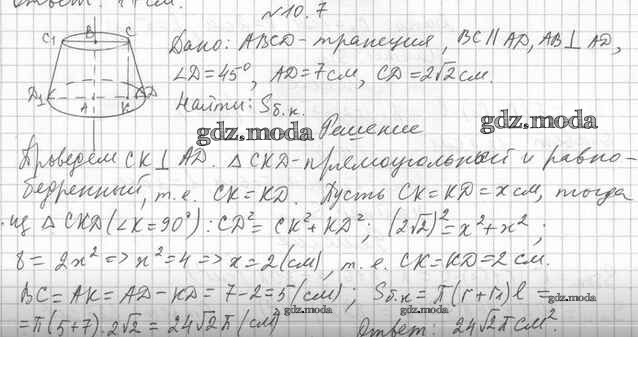 Ответ: 
№10.7
C₁ B C
D₁ K A K D
Дано: ABCD - трапеция, BC || AD, AB ⊥ AD,
∠D = 45°, AD = 7 см, CD = 2√2 см.
Найти: Sб.к.
gdz.moda
gdz.moda
Решение
Проведем CK ⊥ AD. △ CKD - прямоугольный и равно-
бедренный, т.е. CK = KD. Пусть CK = KD = x см, тогда
из △ CKD (∠K = 90°): CD² = CK² + KD²; (2√2)² = x² + x²;
8 = 2x² => x² = 4 => x = 2 (см), т.е. CK = KD = 2 см.
BC = AK = AD - KD = 7 - 2 = 5 (см); Sб.к = π(r + r₁)l =
gdz.moda
gdz.moda
= π(5 + 7) · 2√2 = 24√2π (см²)
gdz.moda
Ответ: 24√2π см².